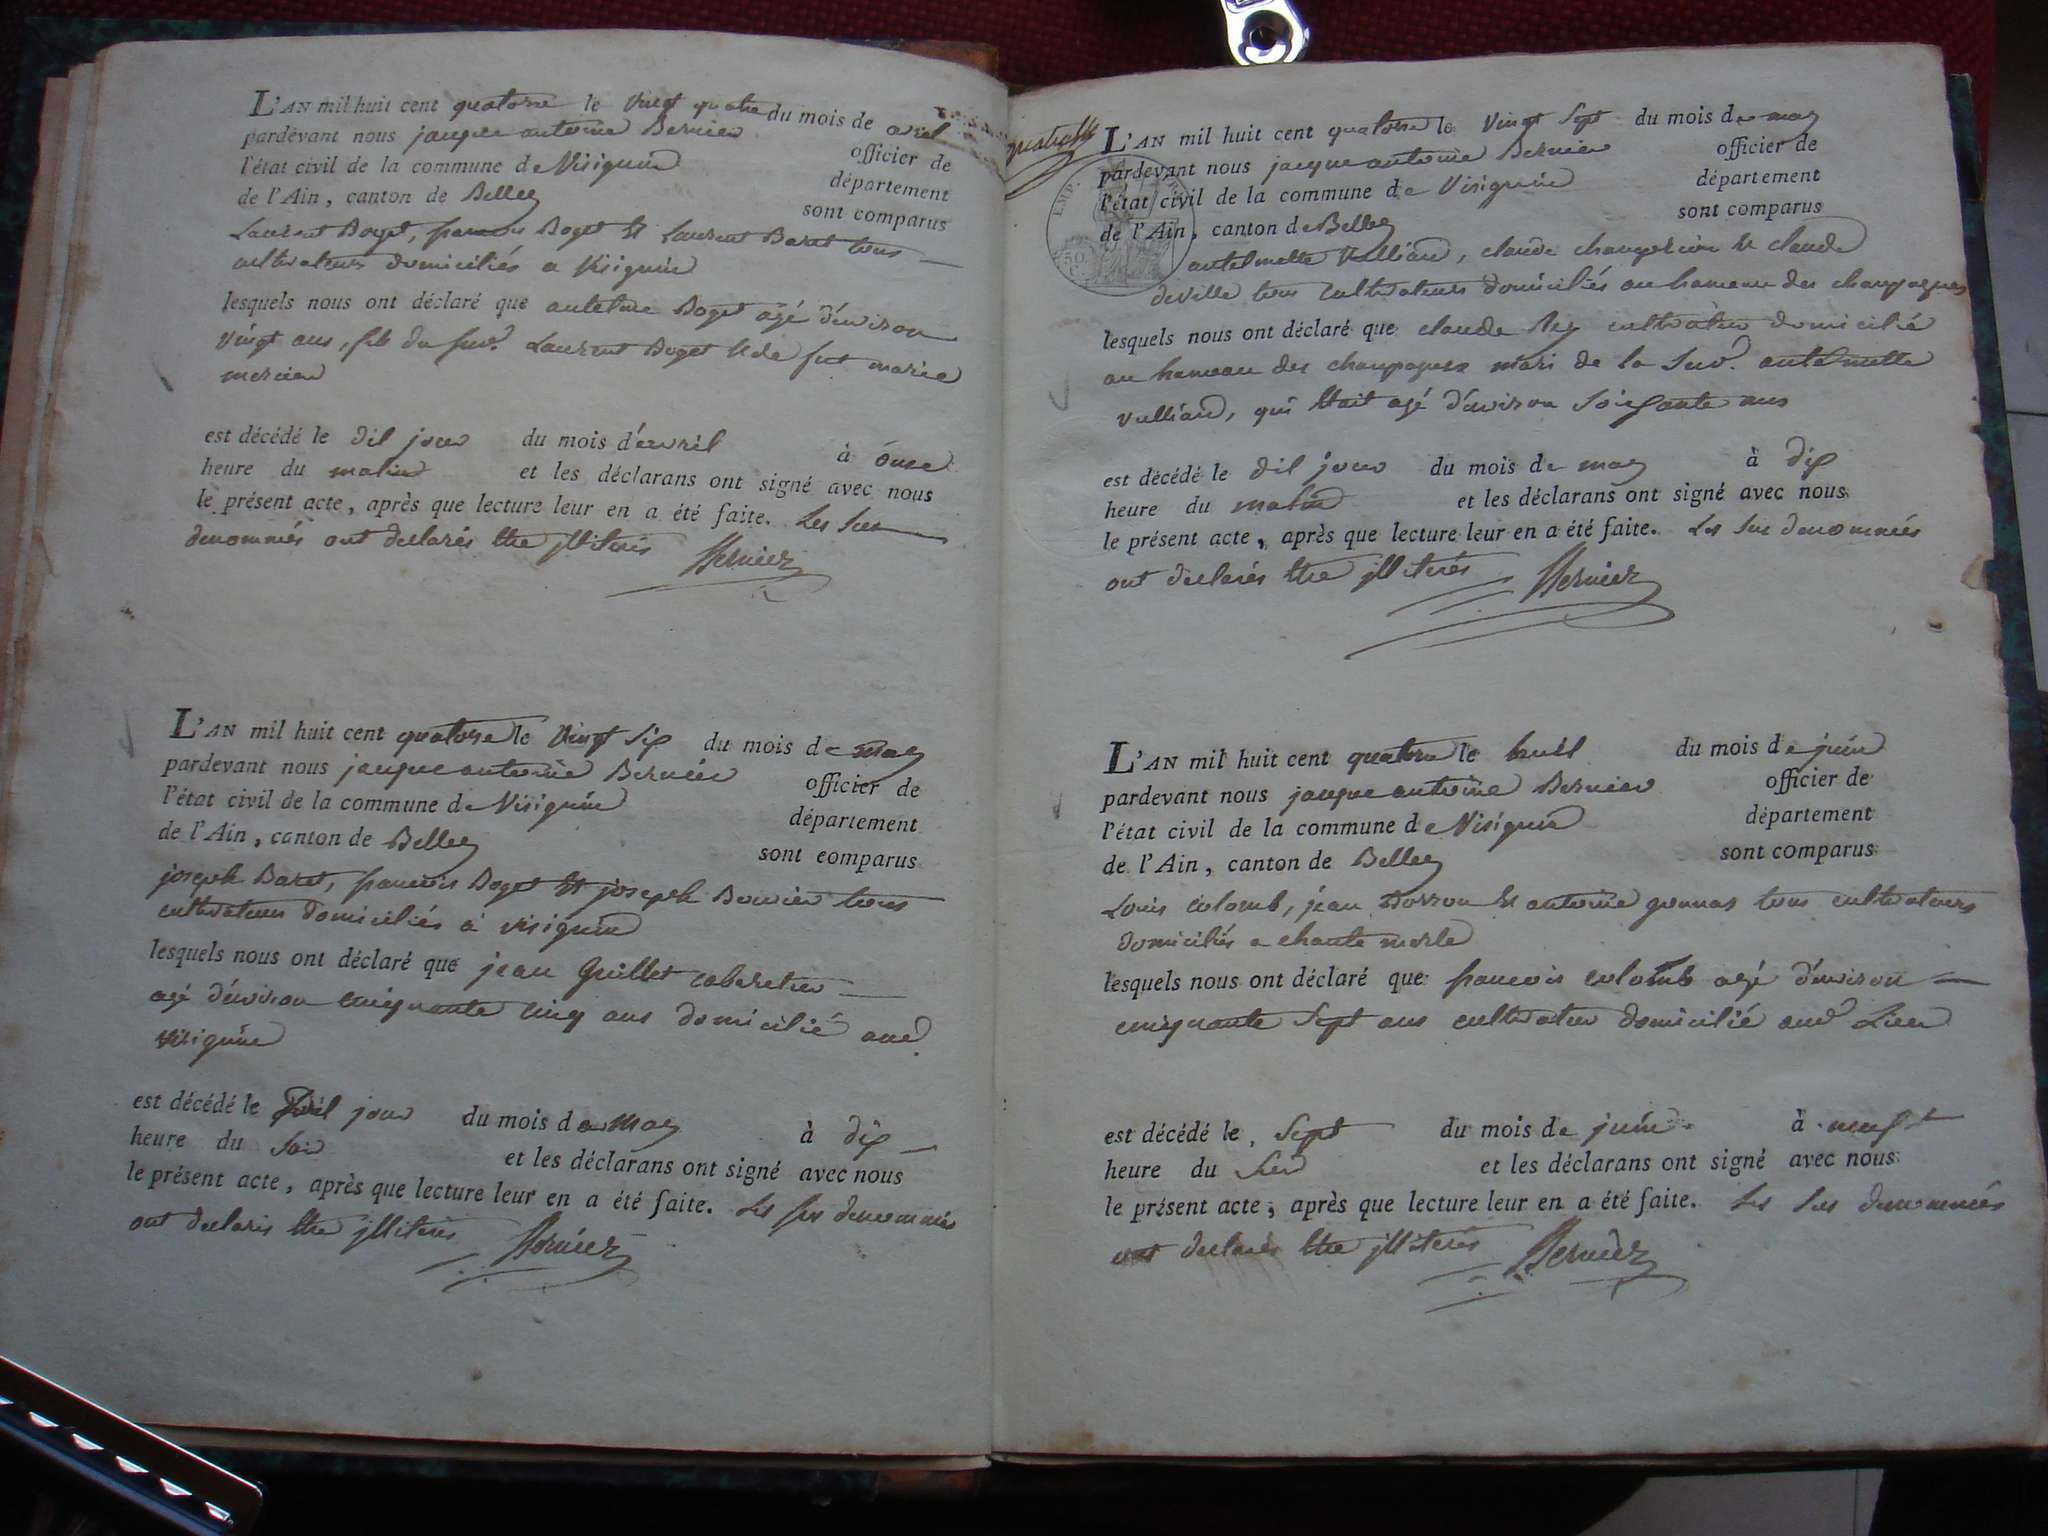 L'AN mil huit cent quatorze le vingt quatre du mois de avril
pardevant nous jacque antoine Bernier officier de
l'état civil de la commune de Virignin département
de l'Ain, canton de Belley sont comparus
Laurent Boget, francois Boget et Laurent Baret tous
cultivateurs domiciliés a Virignin
lesquels nous ont déclaré que antelme Boget agé d'environ
vingt ans, fils du sud. Laurent Boget et de fut marie
mercier
est décédé le dil jour du mois d'avril à onze
heure du matin et les déclarans ont signé avec nous
le présent acte, après que lecture leur en a été faite. Les sus
denommés ont declarés etre illiterés Bernier
L'AN mil huit cent quatorze le vingt six du mois de may
pardevant nous jacque antoine Bernier officier de
l'état civil de la commune de Virignin département
de l'Ain, canton de Belley sont comparus
joseph Baret, francois Boget et joseph Bouvier tous
cultivateurs domiciliés à virignin
lesquels nous ont déclaré que jean Guillet cabaretier
agé d'environ cinquante cinq ans domicilié aud.
virignin
est décédé le dil jour du mois de may à dix
heure du soir et les déclarans ont signé avec nous
le présent acte, après que lecture leur en a été faite. Les sus denommés
ont declarés etre illiterés Bernier
L'AN mil huit cent quatorze le vingt sept du mois de may
pardevant nous jacque antoine Bernier officier de
l'état civil de la commune de Virignin département
de l'Ain, canton de Belley sont comparus
antelmette Vulliard, claude et claude
deville tous cultivateurs domiciliés au hameau des champagnes
lesquels nous ont déclaré que claude Rey cultivateur domicilié
au hameau des champagnes mari de la sud. antelmette
vulliard, qui etait agé d'environ soixante ans
est décédé le dil jour du mois de may à dix
heure du matin et les déclarans ont signé avec nous
le présent acte, après que lecture leur en a été faite. Les sus denommés
ont declarés etre illiterés Bernier
L'AN mil huit cent quatorze le huil du mois de juin
pardevant nous jacque antoine Bernier officier de
l'état civil de la commune de Virignin département
de l'Ain, canton de Belley sont comparus
Louis colomb, jean et antoine gonnas tous cultivateurs
domiciliés a chante merle
lesquels nous ont déclaré que francois colomb agé d'environ
cinquante sept ans cultivateur domicilié aud Lieu
est décédé le sept du mois de juin à neuf
heure du soir et les déclarans ont signé avec nous
le présent acte, après que lecture leur en a été faite. Les sus denommés
ont declarés etre illiterés Bernier